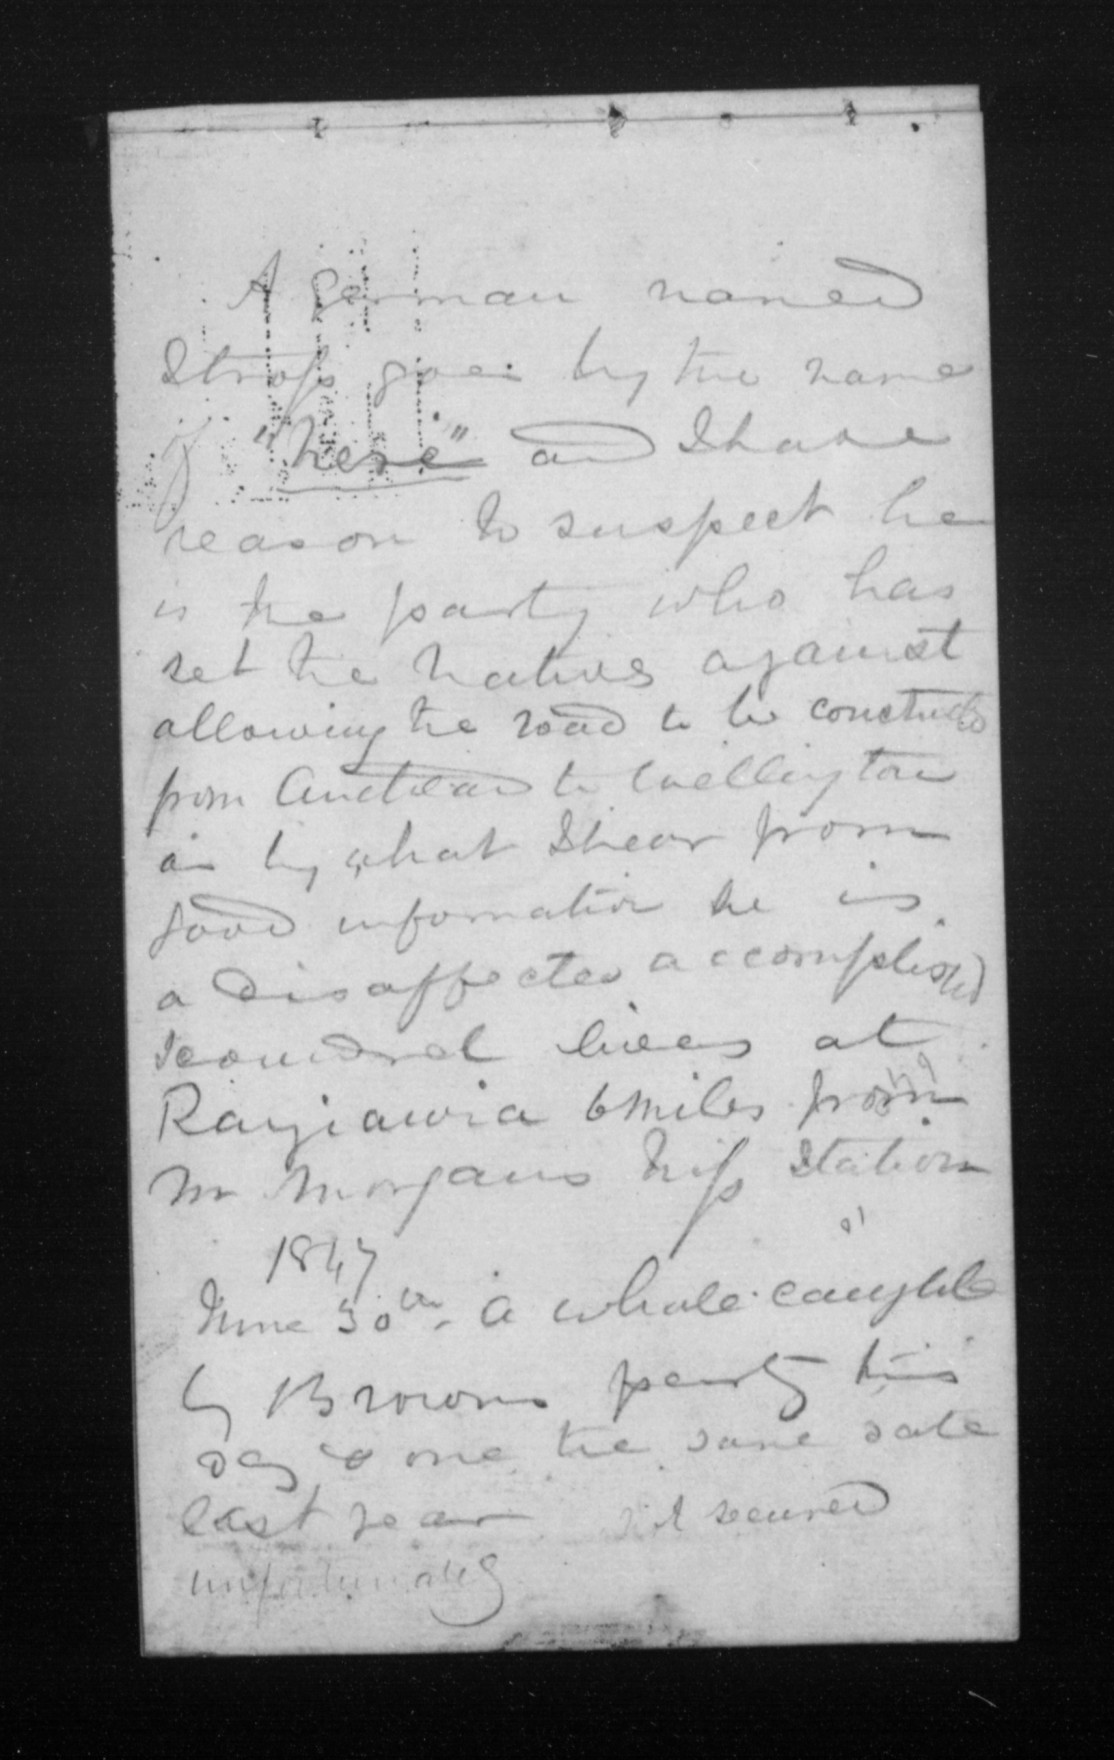 A German named
Stross goes by the name
of "here" and I have
reason to suspect he
is the party who has
set the natives against
allowing the road to be constructed
from Auckland to Wellington
as by what I hear from
good information he is
a disaffected accomplished
scoundrel lives at
Rangiawia 6 miles from
Mr Morgans Miss Station
1847
June 30th. A whale caught
by Browns party this
day & one the same date
last year not secured
unfortunately